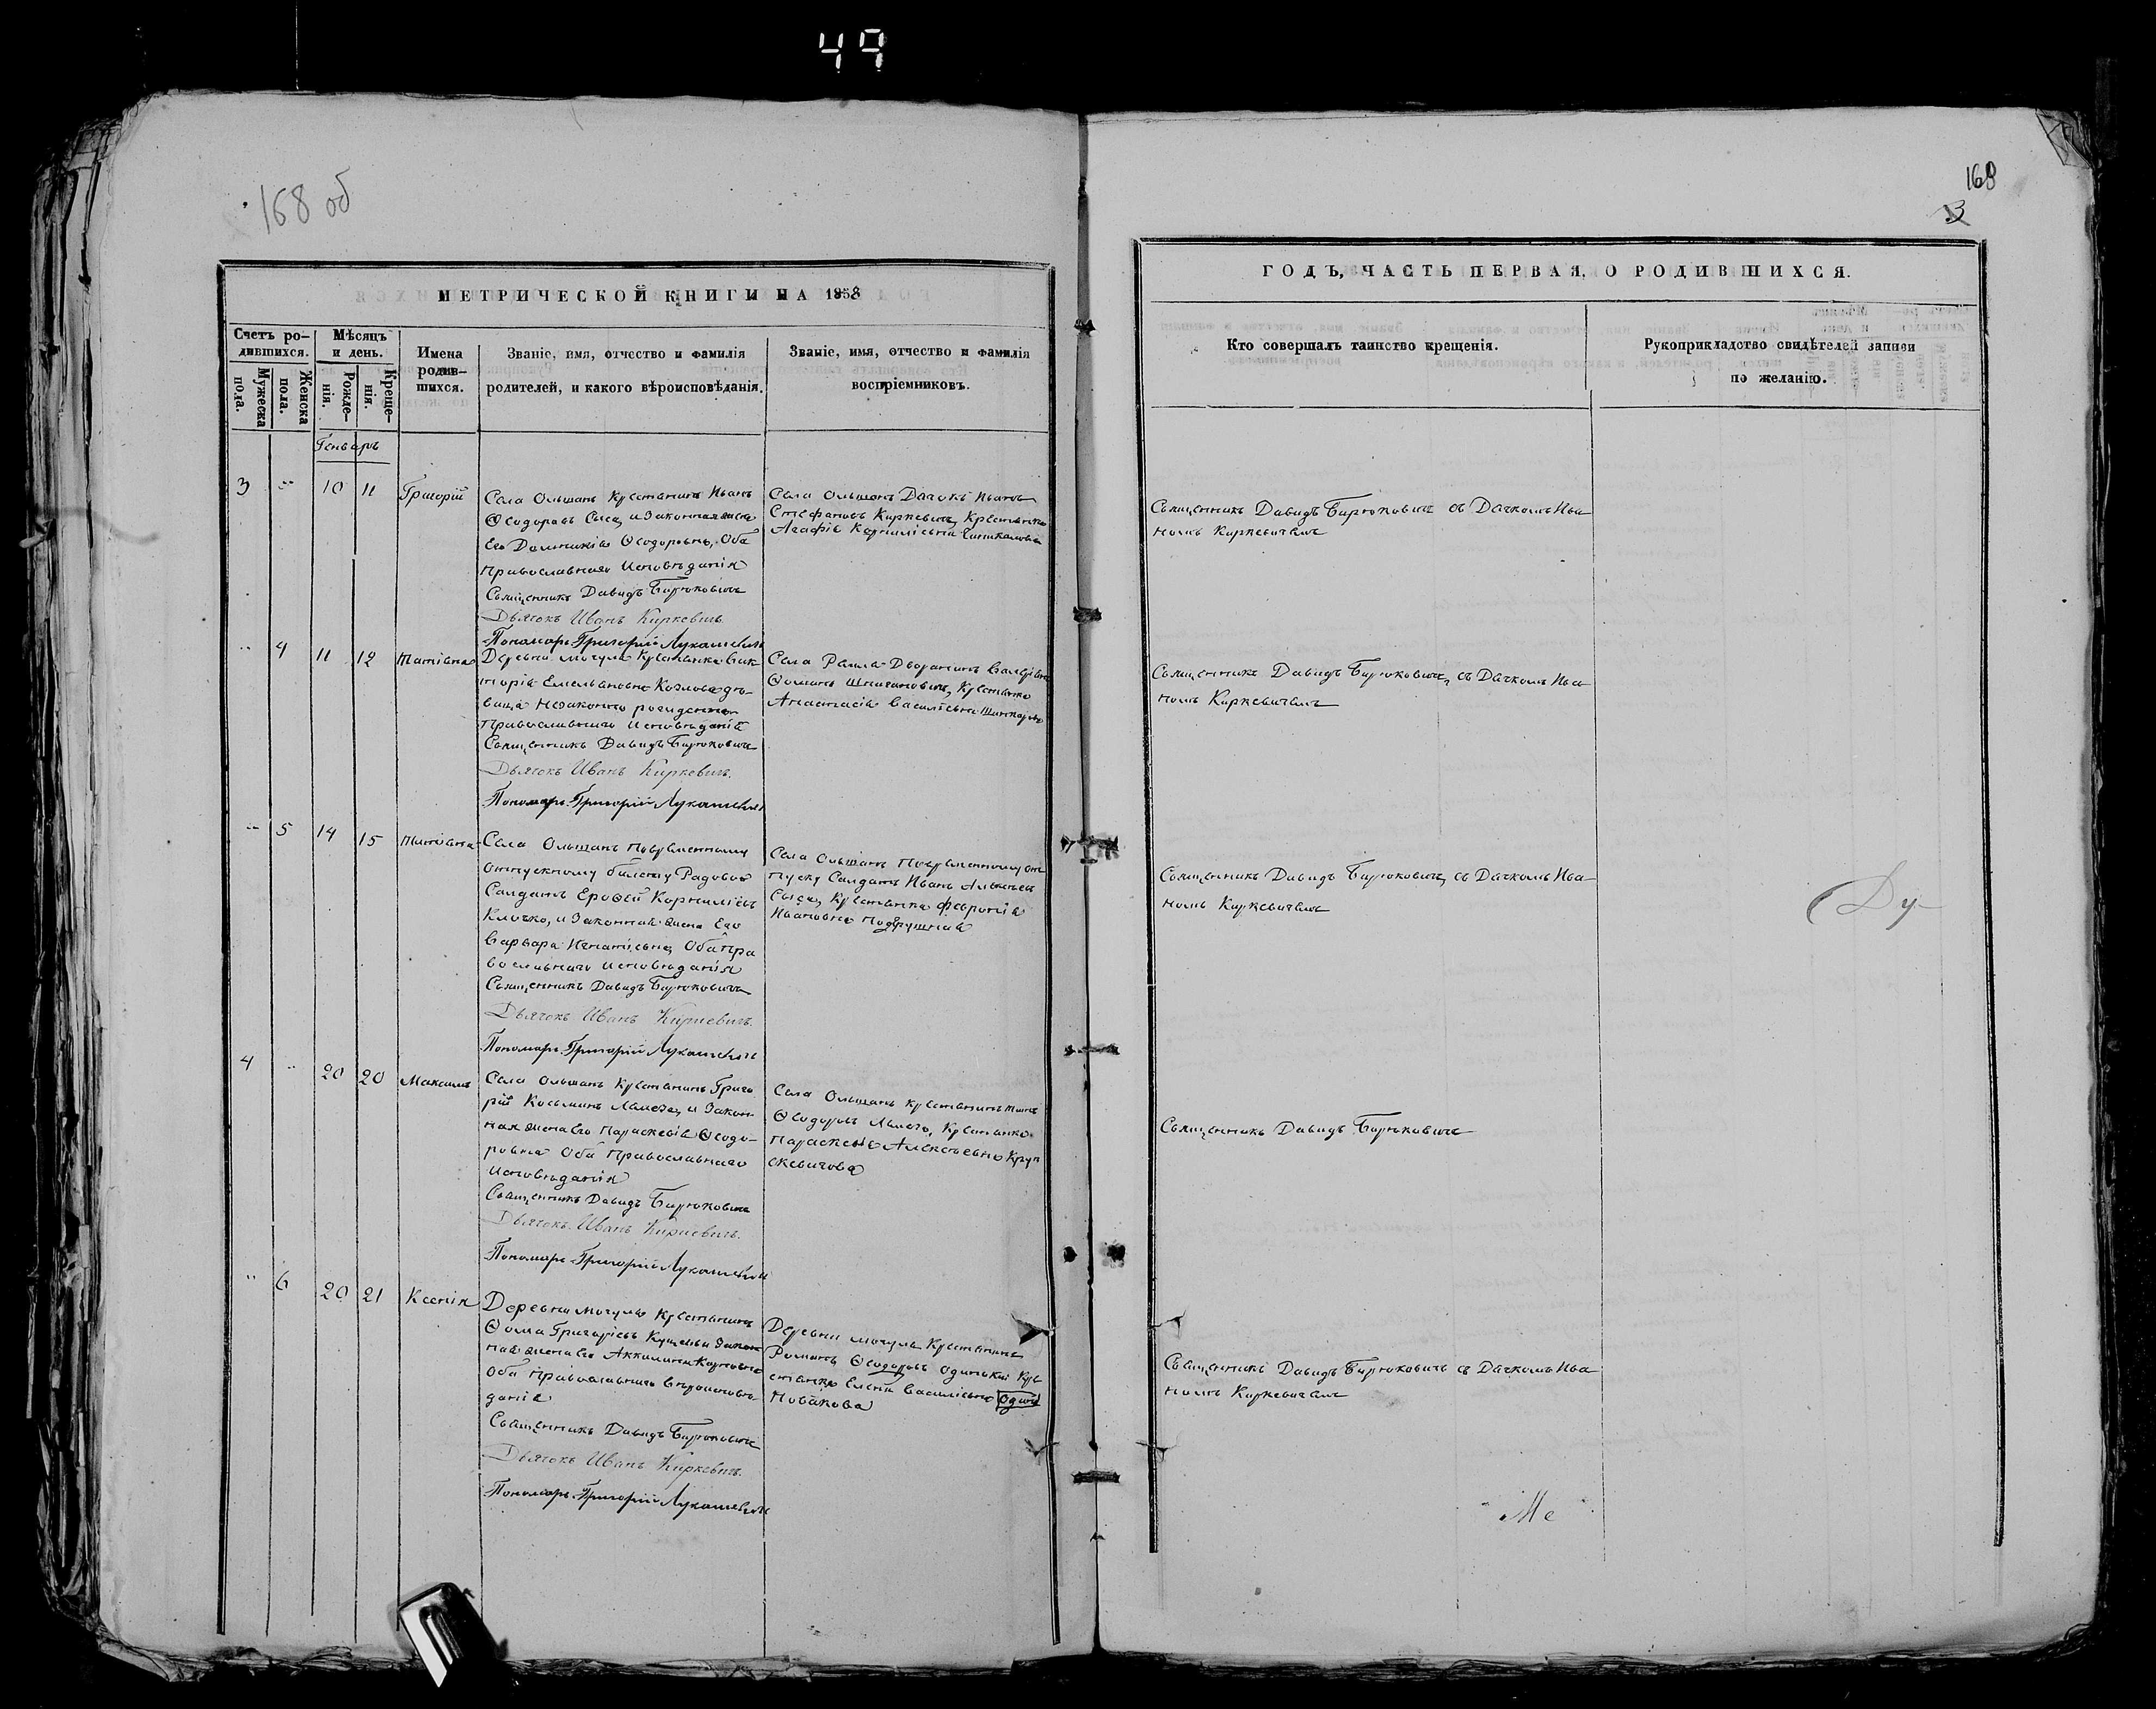 49
168 об
МЕТРИЧЕСКОЙ КНИГИ НА 1858
Счетъ ро-
дившихся.
Мѣсяцъ
и день.
Имена
родив-
шихся.
Званіе, имя, отчество и фамилія
родителей, и какого вѣроисповѣданія.
Званіе, имя, отчество и фамилія
воспріемниковъ.
Мужеска
пола.
Женска
пола.
Рожде-
нія.
Креще-
нія.
Генварь
3 " 10 11 Григорій
Села Ольшанъ Крестьянинъ Иванъ
Ѳеодоровъ Сыса, и Законная жена
Его Домникія Ѳеодоровна, Оба
Православнаго Исповѣданія
Священникъ Давидъ Бирюковичъ
Дьячокъ Иванъ Киркевичъ.
Пономарь Григорій Лукашевичъ
Села Ольшанъ Дьячокъ Иванъ
Стефановъ Киркевичъ, Крестьянка
Агафія Корниліевна
" 4 11 12 Татіана
Деревни Мочуля Крестьянка Вик-
торія Емельяновна Козлова дѣ-
вица незаконно рожденна
Православнаго Исповѣданія
Священникъ Давидъ Бирюковичъ
Дьячокъ Иванъ Киркевичъ.
Пономарь Григорій Лукашевичъ
Села Дворянинъ
Ѳоминъ Крестьянка
Анастасія Василіевна
" 5 14 15 Татіана
Села Ольшанъ Повременному
отпускному билету Рядовой
Салдатъ Ерофей Корниліевъ
Клочко, и Законная жена Его
Варвара Игнатіевна, Оба Пра
вославнаго Исповѣданія
Священникъ Давидъ Бирюковичъ
Дьячокъ Иванъ Киркевичъ.
Пономарь Григорій Лукашевичъ
Села Ольшанъ Повременному от
пуску Салдатъ Иванъ Алексѣевъ
Сыса, Крестьянка Февронія
Ивановна
4 " 20 20 Максимъ
Села Ольшанъ Крестьянинъ Григо
рій Косьминъ и Закон-
ная жена Его Параскевія Ѳеодо-
ровна Оба Православнаго
Исповѣданія
Священникъ Давидъ Бирюковичъ
Дьячокъ Иванъ Киркевичъ.
Пономарь Григорій Лукашевичъ
Села Ольшанъ Крестьянинъ
Ѳеодоровъ Крестьянка
Параскевія Алексѣевна Круп
скевичова
" 6 20 21 Ксенія
Деревни Мочуля Крестьянинъ
Ѳома Григоріевъ и Закон
ная жена Его Акилина Карповна
Оба Православнаго Вѣроисповѣ-
данія
Священникъ Давидъ Бирюковичъ
Дьячокъ Иванъ Киркевичъ.
Пономарь Григорій Лукашевичъ
Деревни Мочуля Крестьянинъ
Романъ Ѳеодоровъ Одинькій Кре
стьянка Елена Василіевна
Новакова
168
3
ГОДЪ, ЧАСТЬ ПЕРВАЯ, О РОДИВШИХСЯ.
Кто совершалъ таинство крещенія.
Рукоприкладство свидѣтелей записи
по желанію.
Священникъ Давидъ Бирюковичъ съ Дячкомъ Ива
номъ Киркевичемъ
Священникъ Давидъ Бирюковичъ, съ Дячкомъ Ива
номъ Киркевичемъ
Священникъ Давидъ Бирюковичъ, съ Дячкомъ Ива
номъ Киркевичемъ
Ду-
Священникъ Давидъ Бирюковичъ
Священникъ Давидъ Бирюковичъ съ Дячкомъ Ива
номъ Киркевичемъ
Ме